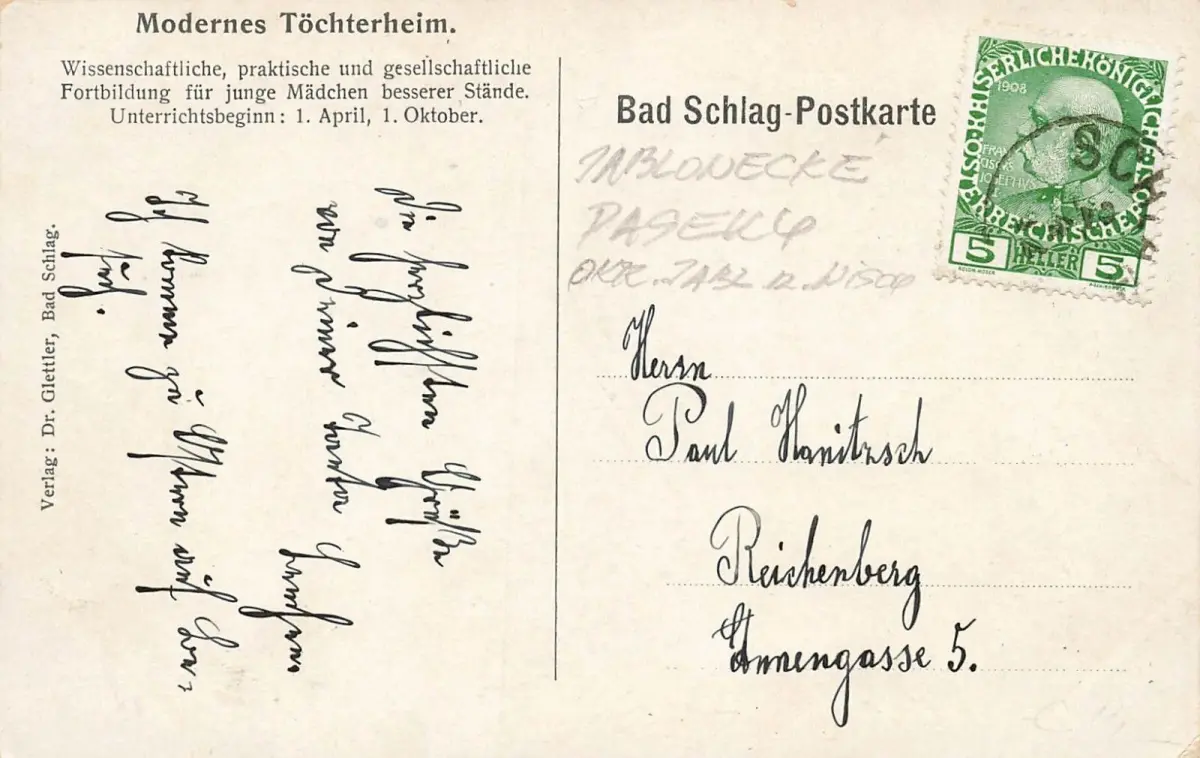 Modernes Töchterheim.
Wissenschaftliche, praktische und gesellschaftliche
Fortbildung für junge Mädchen besserer Stände.
Unterrichtsbeginn: 1. April, 1. Oktober.
Verlag: Dr. Glettler, Bad Schlag.
Die herzlichsten Grüße
von Deiner
Ich komme zu Ostern auf
Bad Schlag-Postkarte
JABLONECKÉ
PASEKY
OKR. JABL N. NISOU
KAISERLICHEKÖNIGLICHE
ÖSTERREICHISCHE
1908
HELLER
5 5
Herrn
Paul Hanitzsch
Reichenberg
Annengasse 5.